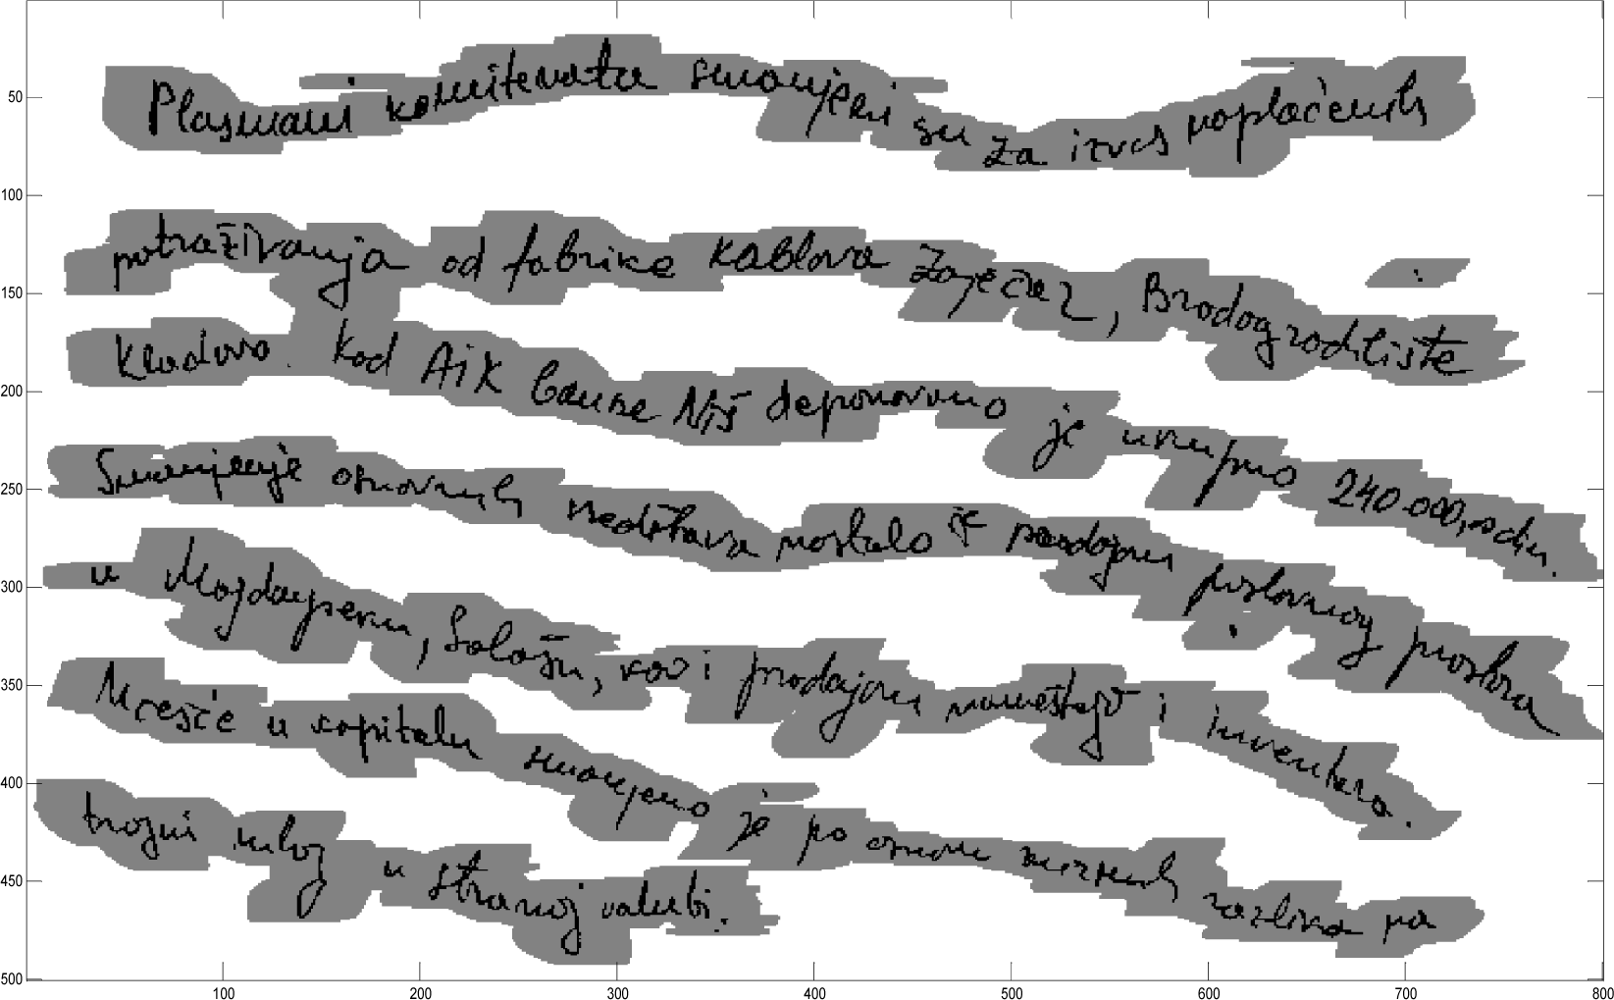 Plasmani komitenata smanjeni su za iznos naplaćenih
potraživanja od fabrike kablova Zaječar, Brodogradilište
Kladovo. Kod AIK banke Niš deponovano je ukupno 240.000, din.
Smanjenje osnovnih sredstava nastalo je prodajom poslovnog prostora
u Majdanpeku, Salašu, kao i prodajom nameštaja i inventara.
Učešće u kapitalu smanjeno je po osnovu kursnih razlika na
trajni ulog u stranoj valuti.
50
100
150
200
250
300
350
400
450
500
100
200
300
400
500
600
700
800